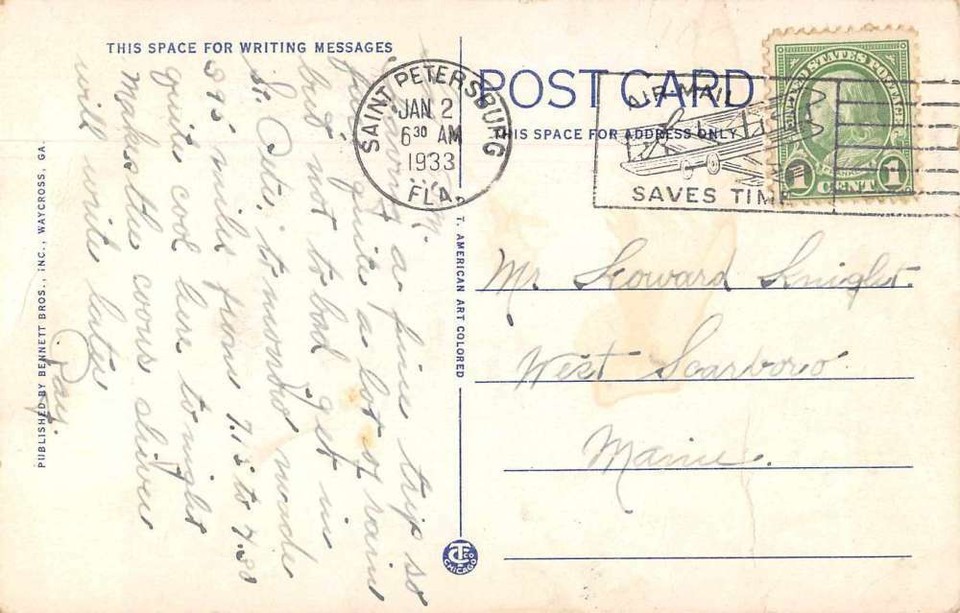 THIS SPACE FOR WRITING MESSAGES
POST CARD
THIS SPACE FOR ADDRESS ONLY
SAINT PETERSBURG
JAN 2
6 30 AM
1933
FLA.
AIR MAIL
SAVES TIME
UNITED STATES POSTAGE
1 CENT 1
a fine trip so
far quite a lot of rain
but not to bad get in
St. Pete, to morrow made
395 miles from 7.15 to 4.30
quite cool here to night
Makes the coons shiver
will write later
Ray.
Mr. Howard Knight.
West Scarboro
Maine.
PUBLISHED BY BENNETT BROS., INC., WAYCROSS, GA.
T. AMERICAN ART COLORED
CT CO
CHICAGO